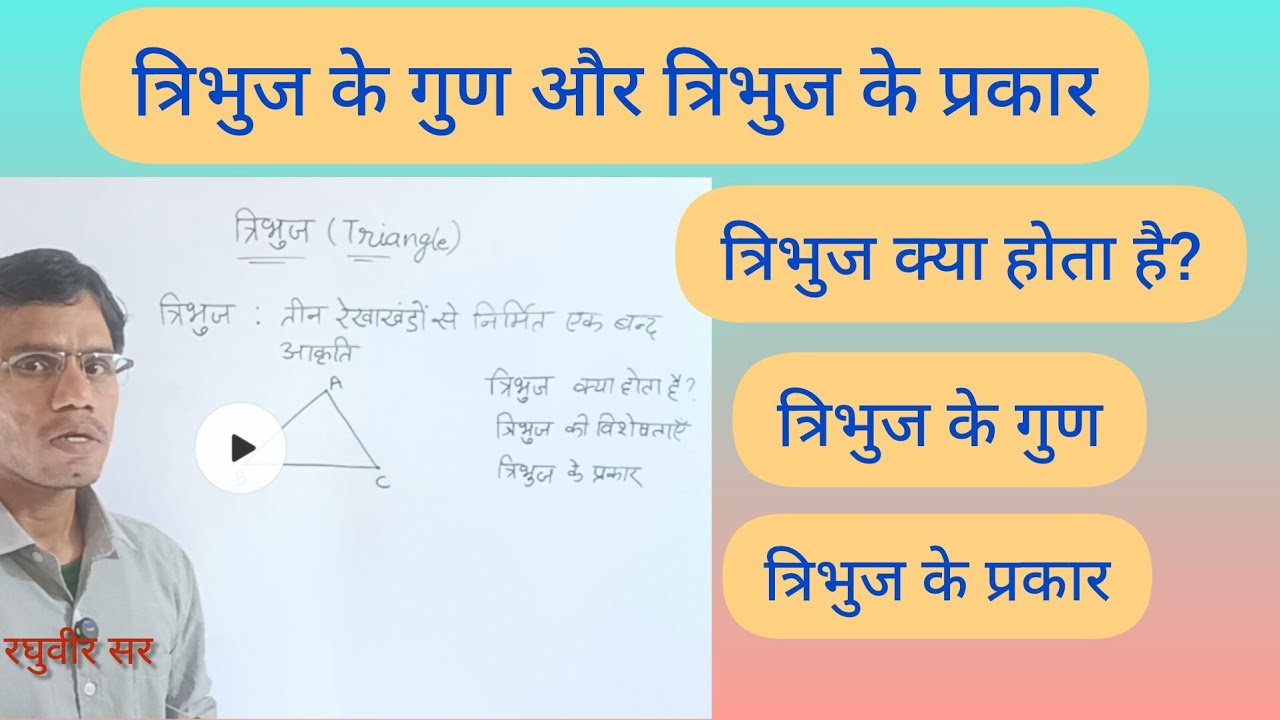 त्रिभुज के गुण और त्रिभुज के प्रकार
त्रिभुज (Triangle)
त्रिभुज : तीन रेखाखंडों से निर्मित एक बन्द
आकृति
A
B
C
त्रिभुज क्या होता है?
त्रिभुज की विशेषताएँ
त्रिभुज के प्रकार
त्रिभुज क्या होता है?
त्रिभुज के गुण
त्रिभुज के प्रकार
रघुवीर सर